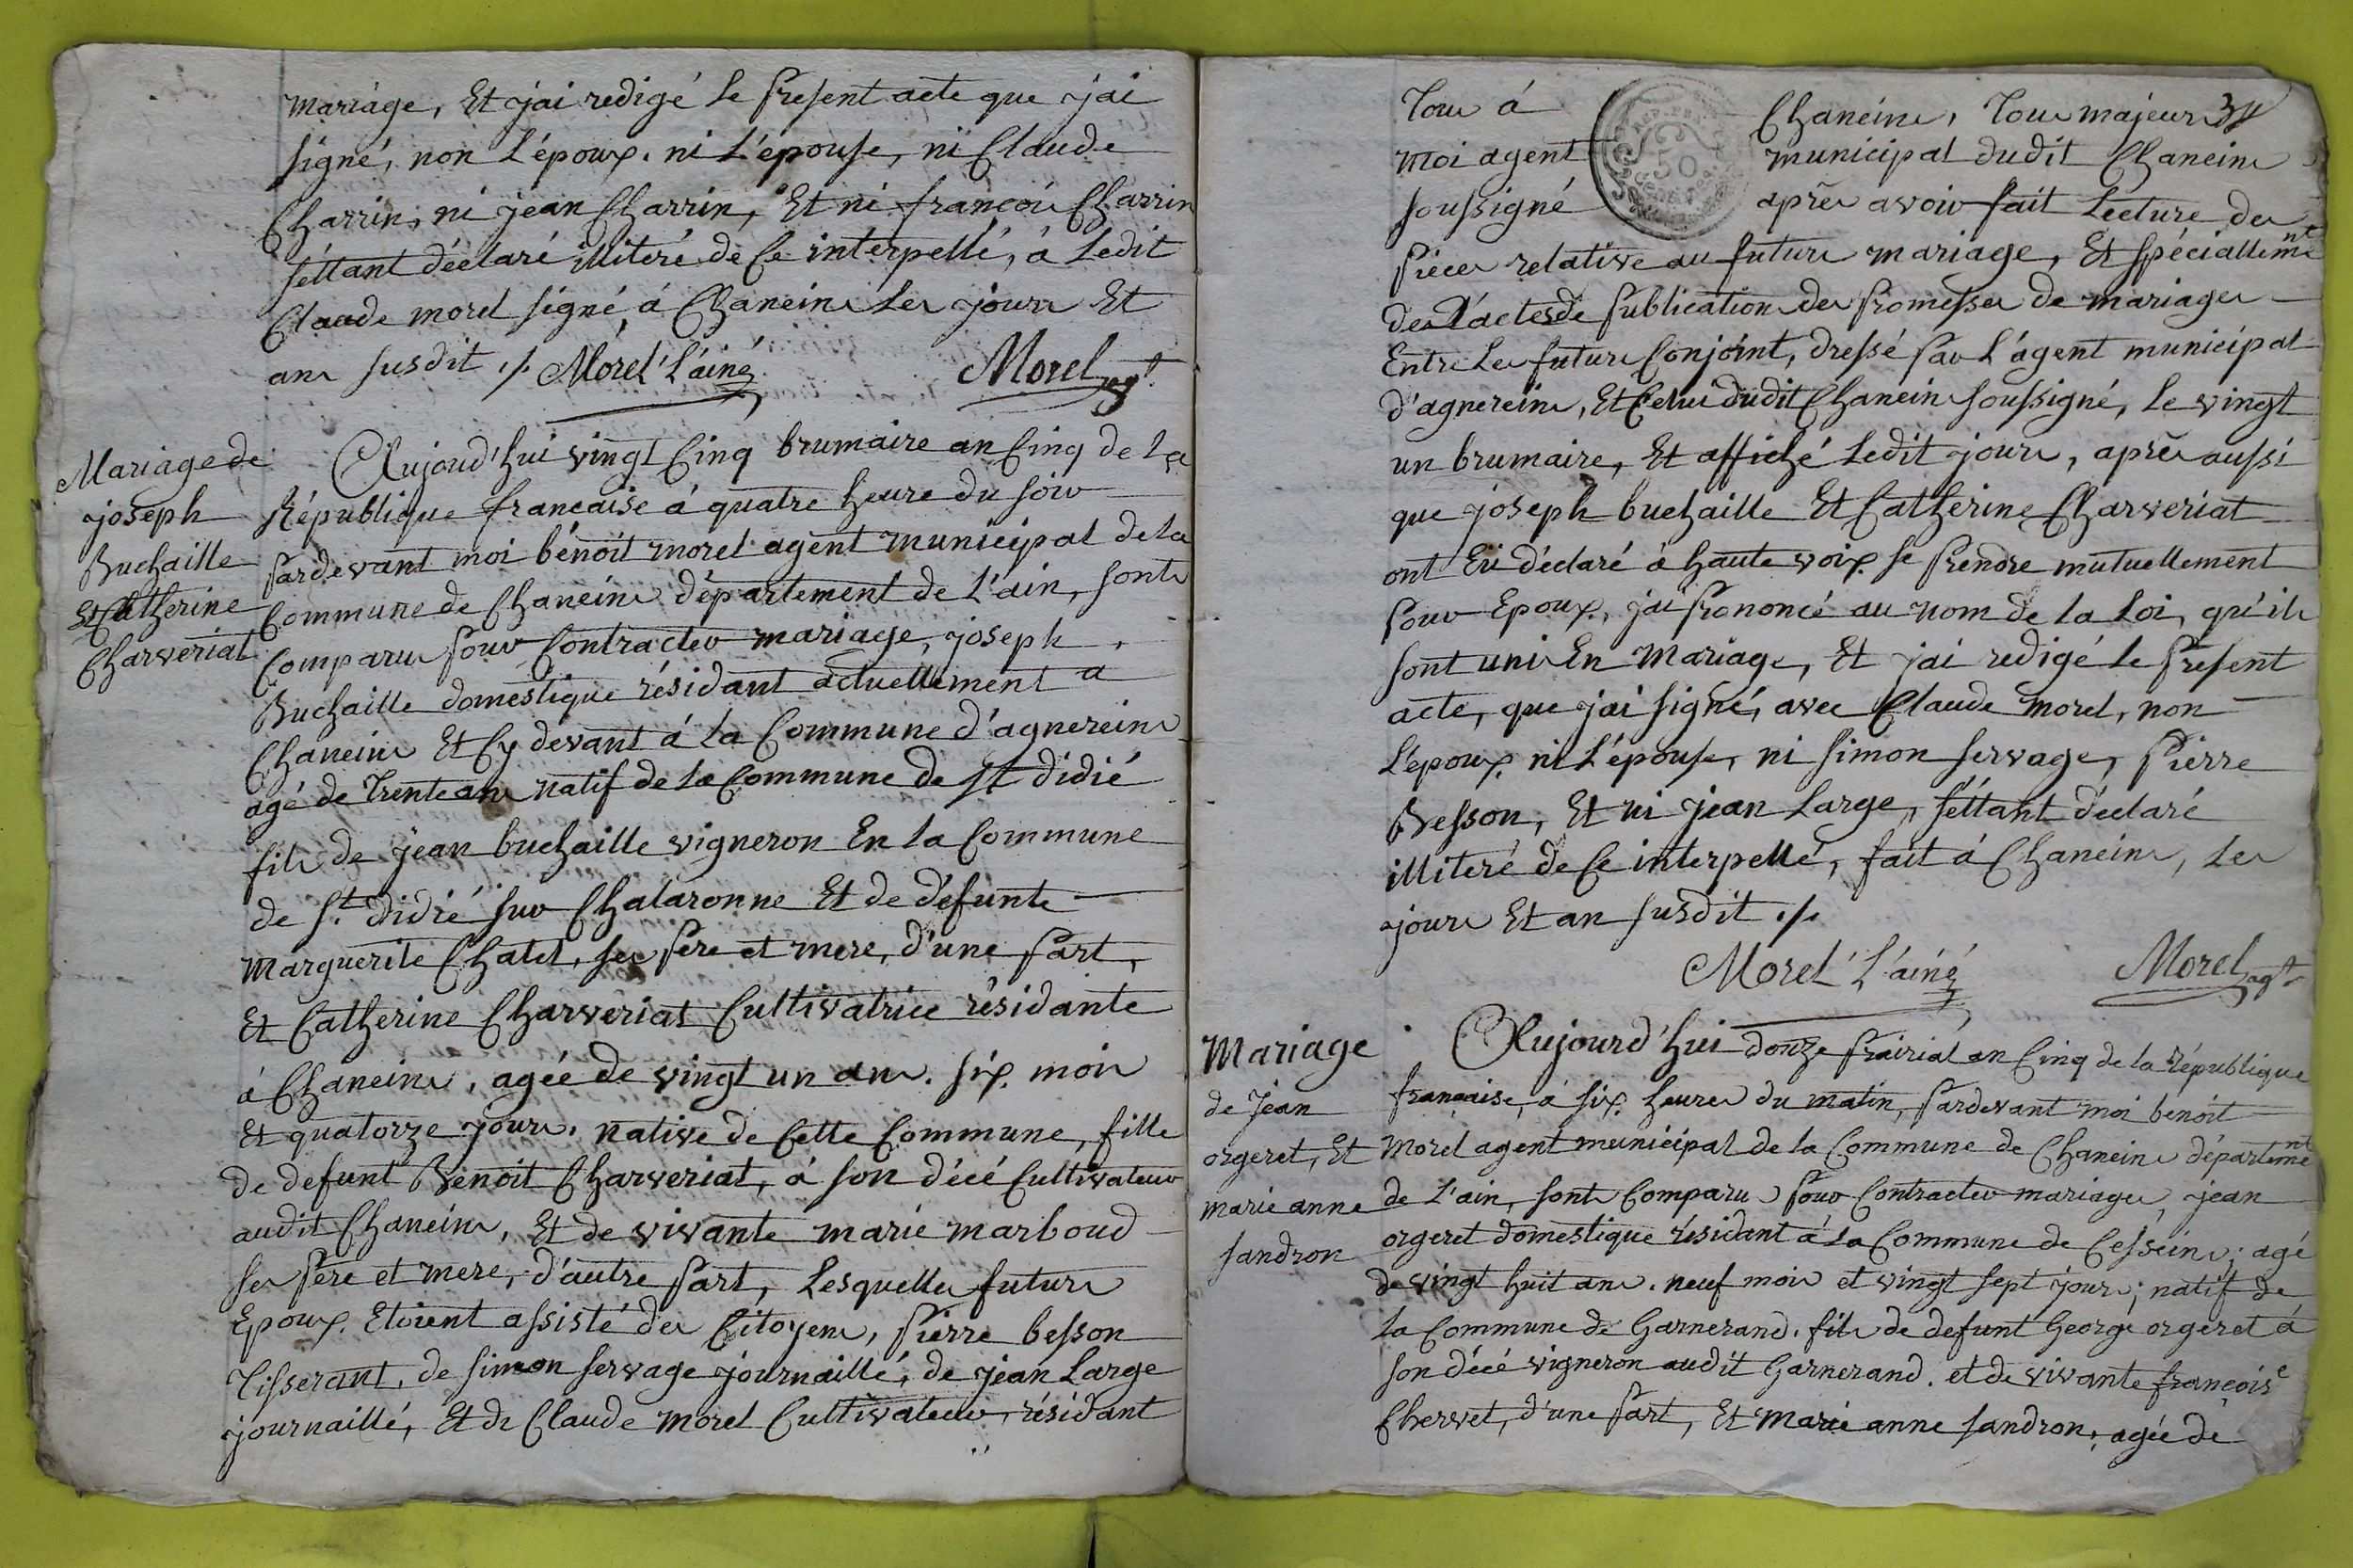 mariage, Et jai redigé le present acte que jai
signé, non L'époux. ni L'épouse, ni Claude
Charrin, ni jean Charrin, Et ni francois Charrin
séttant déclaré illiteré de Ce interpellé, à Ledit
Claude morel signé, à Chaneins Les jours Et
ans susdit ./. Morel L'ainé Morel agt
Mariage de
joseph
Buchaille
Et Catherine
Charveriat
Aujourd'hui vingt Cinq brumaire an Cinq de La
République francaise à quatre heure du soir
pardevant moi bénoit morel agent municipal de la
Commune de Chaneins département de L'ain, sonts
Comparus pour Contracter mariage, joseph
Buchaille domestique résidant actuellement a
Chaneins Et Cy devant à la Commune d'agnereins
agé de trente ans natif de la Commune de st didié
fils de jean buchaille vigneron En la Commune
de st. didié sur Chalaronne Et de défunte
marguerite Chatel, ses pere et mere, d'une part,
Et Catherine Charveriat Cultivatrice résidante
à Chaneins, agée de vingt un ans. six mois
Et quatorze jours. native de Cette Commune, fille
de defunt Benoit Charveriat, à son décé Cultivateur
audit Chaneins, Et de vivante marie marboud
ses pere et mere, d'autre part, Lesquelles futurs
Epoux. Etoient assisté des Citoyens, pierre besson
tisserant, de simon servage journaillé, de jean Large
journaillé, Et de Claude morel Cultivateur, résidant
tous à Chaneins, tous majeurs
moi agent municipal dudit Chaneins
soussigné après avoir fait Lecture des
pieces relative au futurs mariage, Et spéciallemnt
des l'actes de publication des promesses de mariages
Entre Les futurs Conjoint, dressé par L'agent municipal
d'agnereins, Et Celui dudit Chaneins soussigné, Le vingt
un brumaire, Et affiché Ledit jours, après aussi
que joseph buchaille Et Catherine Charveriat
ont Eü déclaré à haute voix se prendre mutuellement
pour Epoux, jai prononcé au nom de la Loi, qu'ils
sont unis En mariage, Et jai redigé le present
acte, que jai signé, avec Claude morel, non
L'époux ni L'épouse, ni simon servage, pierre
Besson, Et ni jean Large, séttant déclaré
illiteré de Ce interpellé, fait à Chaneins, Les
jours Et an susdit ./.
Morel L'ainé Morel agt
Mariage
de jean
orgeret, Et
marie anne
sandron
Aujourd'hui douze prairial an Cinq de la république
française, à six. heures du matin, pardevant moi benoit
Morel agent municipal de la Commune de Chaneins départemnt
de L'ain, sonts Comparus pour Contracter mariages, jean
orgeret domestique résidant à la Commune de Cesseins; agé
de vingt huit ans. neuf mois et vingt sept jours; natif de
la Commune de Garnerand. fils de defunt George orgeret à
son décé vigneron audit Garnerand. et de vivante francoise
Chervet, d'une part, Et marie anne sandron, agée de